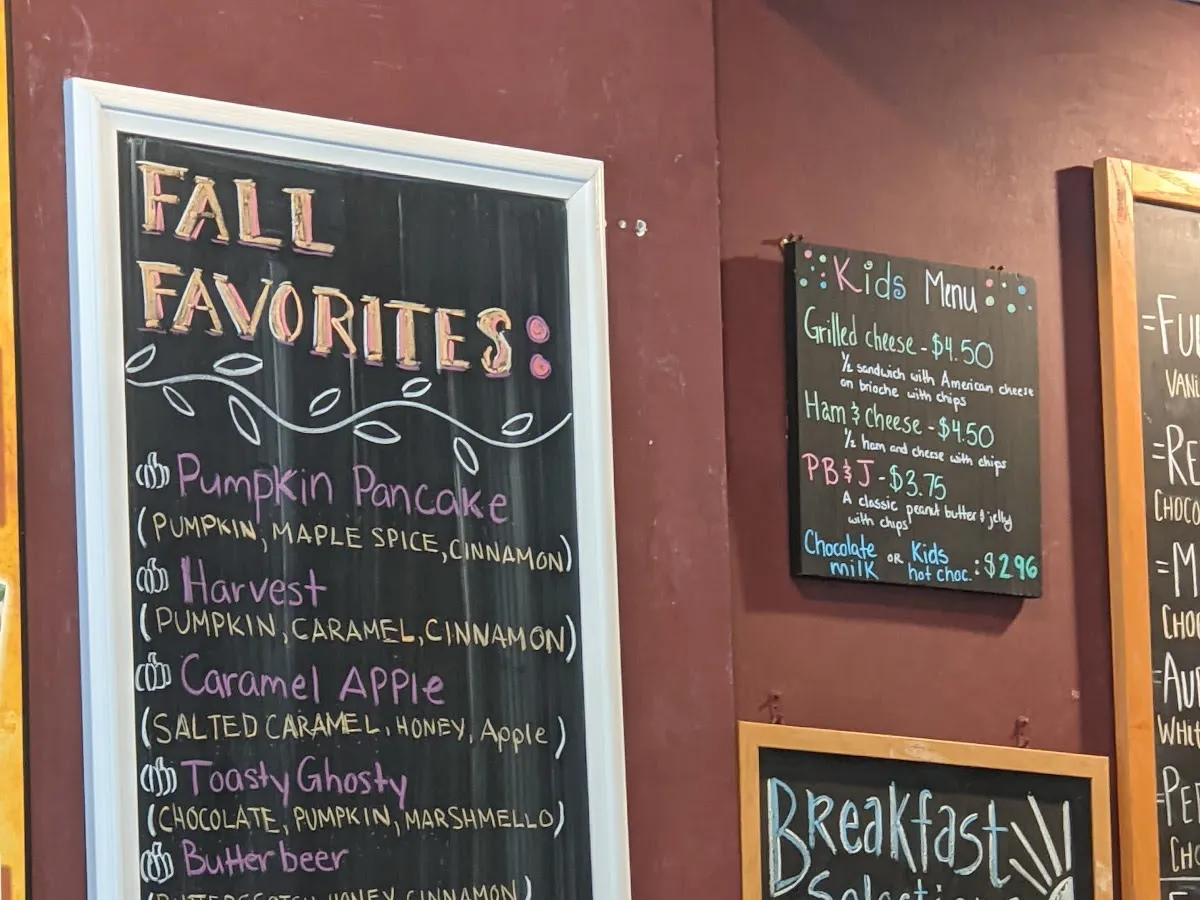 FALL
FAVORITES:
Pumpkin Pancake
(PUMPKIN, MAPLE SPICE, CINNAMON)
Harvest
(PUMPKIN, CARAMEL, CINNAMON)
Caramel APPle
(SALTED CARAMEL, HONEY, Apple)
Toasty Ghosty
(CHOCOLATE, PUMPKIN, MARSHMELLO)
Butterbeer
(BUTTERSCOTCH, HONEY, CINNAMON)
Kids Menu
Grilled cheese - $4.50
1/2 sandwich with American cheese
on brioche with chips
Ham & Cheese - $4.50
1/2 ham and cheese with chips
PB & J - $3.75
A classic peanut butter & jelly
with chips
Chocolate milk OR Kids hot choc. : $2.96
Breakfast